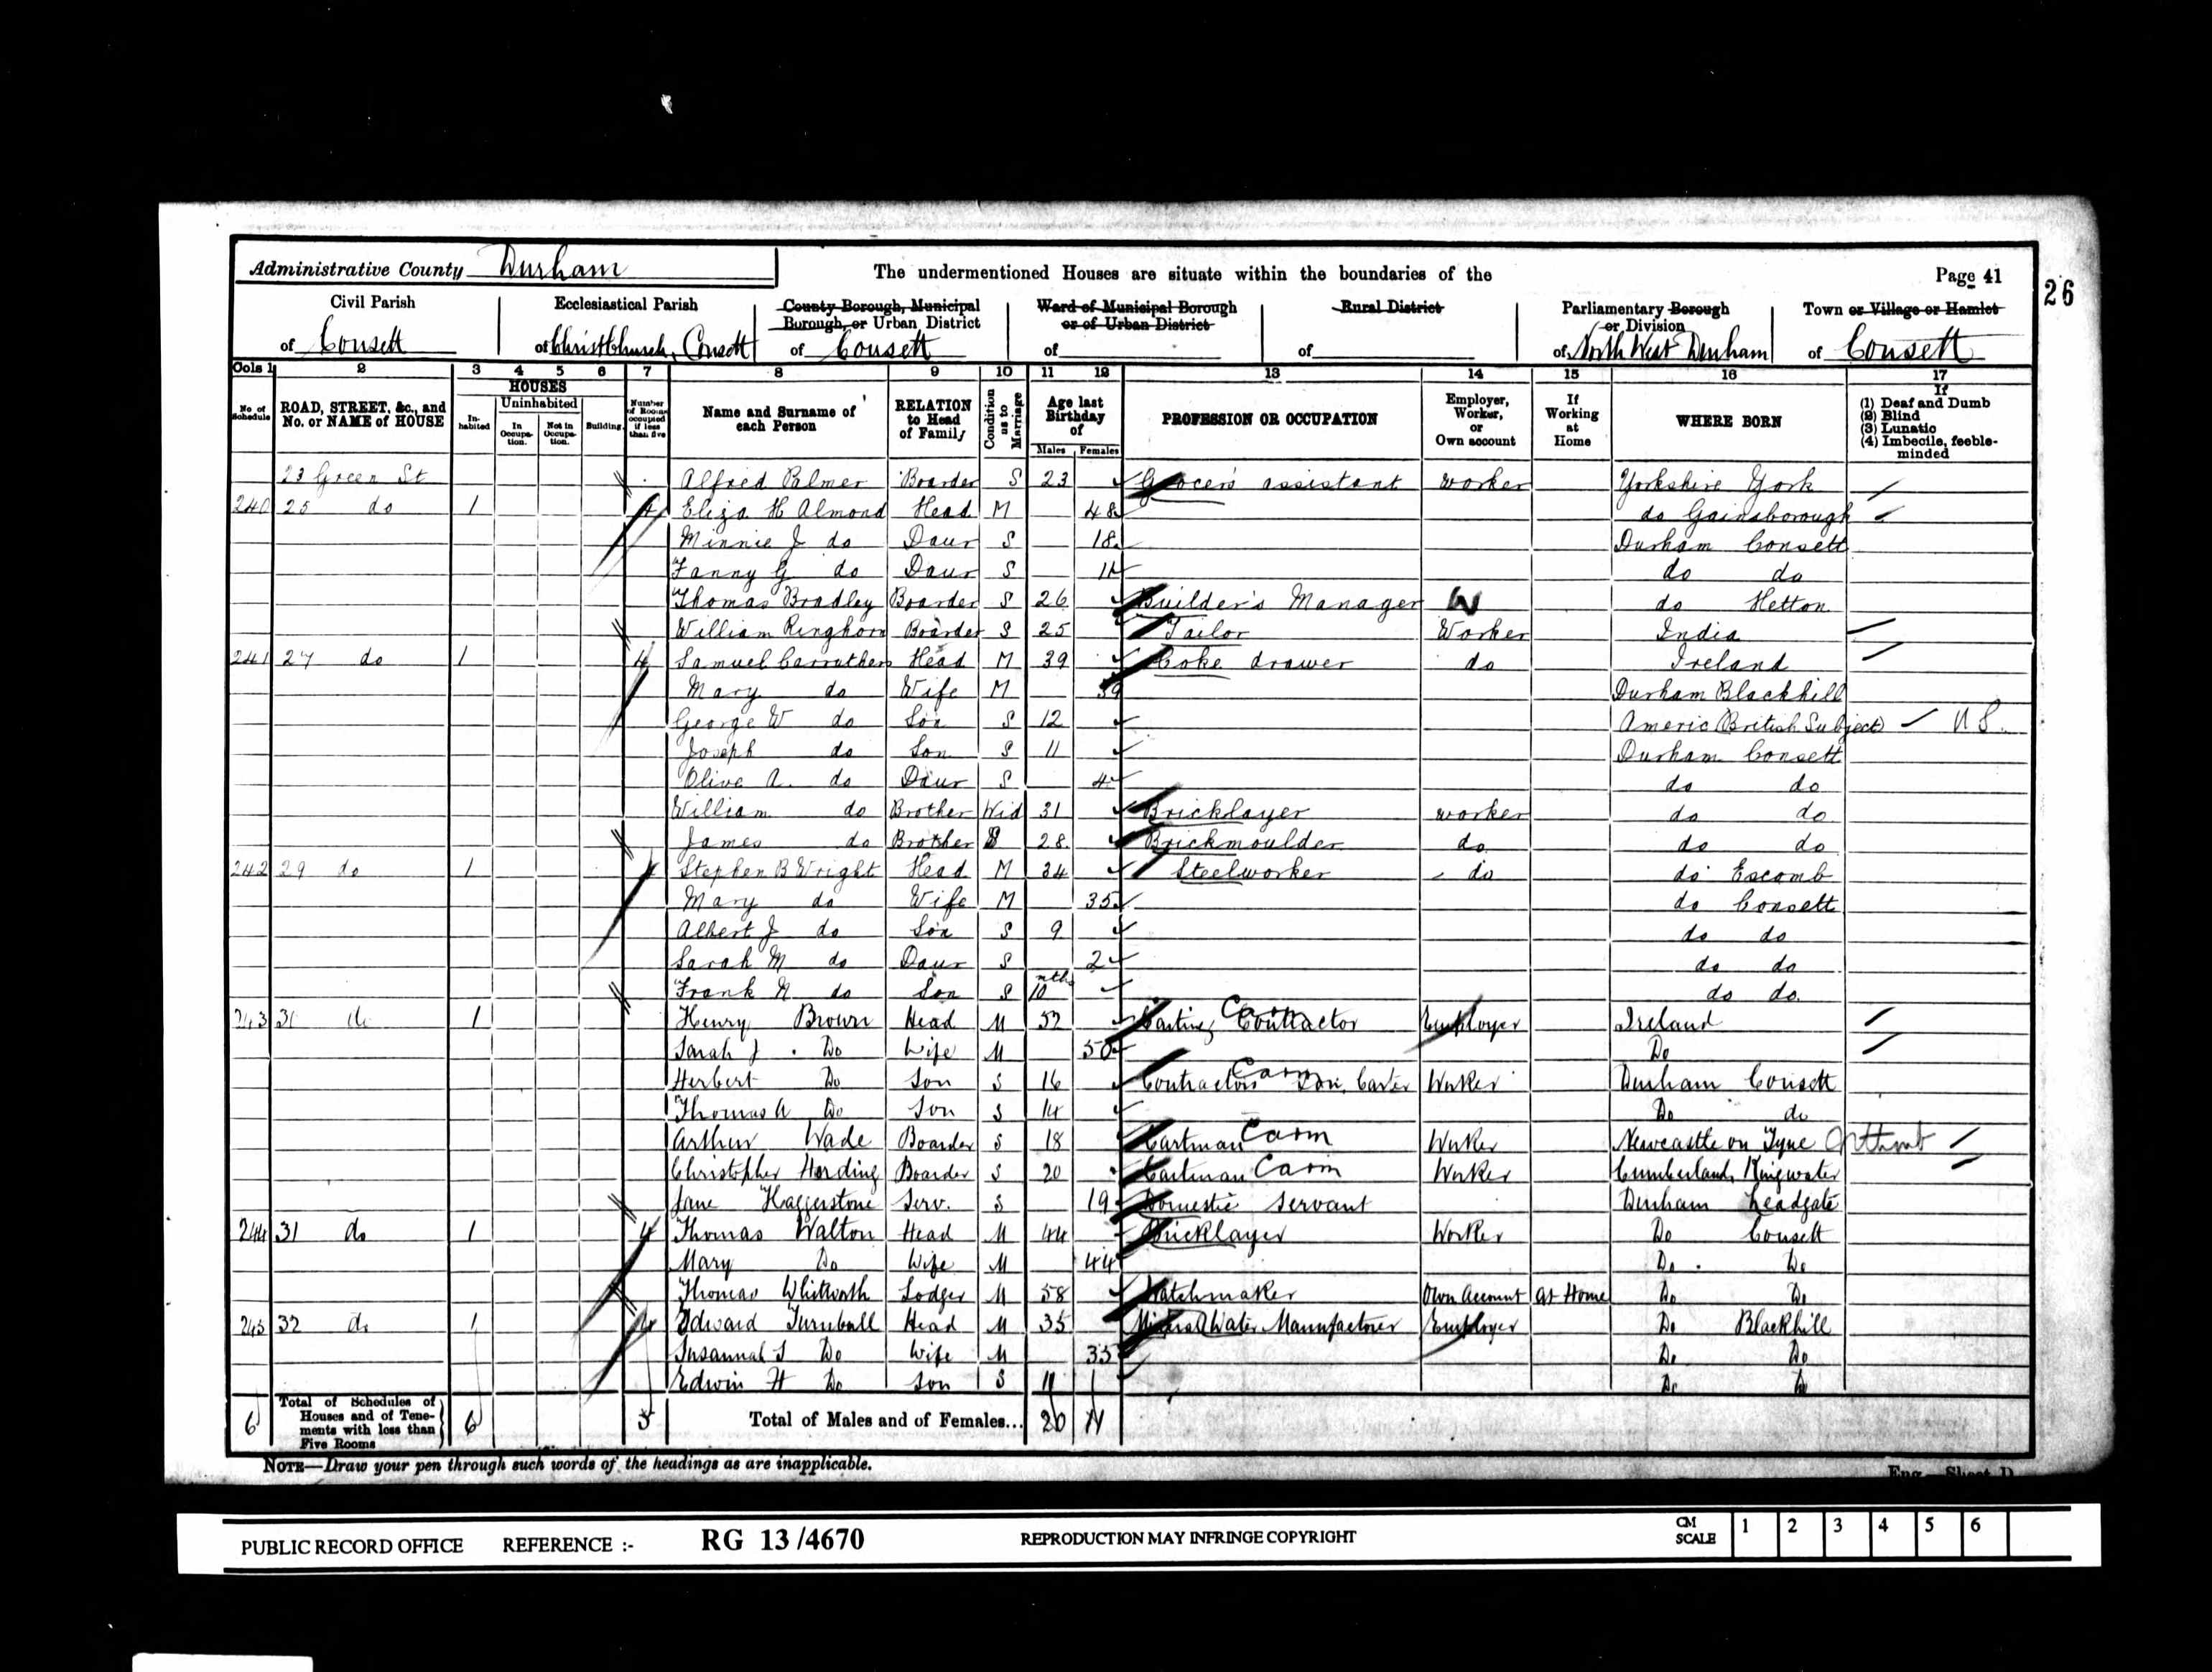 Administrative County Durham
The undermentioned Houses are situate within the boundaries of the
Page 41
26
Civil Parish
of Consett
Ecclesiastical Parish
of Christ Church, Consett
County Borough, Municipal Borough, or Urban District
of Consett
Ward of Municipal Borough or of Urban District
of
Rural District
of
Parliamentary Borough or Division
of North West Durham
Town or Village or Hamlet
of Consett
Cols 1 2 3 4 5 6 7 8 9 10 11 12 13 14 15 16 17
No of Schedule
ROAD, STREET, &c., and No. or NAME of HOUSE
HOUSES
In-habited
Uninhabited
In Occupa-tion.
Not in Occupa-tion.
Building.
Number of Rooms occupied if less than five
Name and Surname of each Person
RELATION to Head of Family
Condition as to Marriage
Age last Birthday of
Males Females
PROFESSION OR OCCUPATION
Employer, Worker, or Own account
If Working at Home
WHERE BORN
If
(1) Deaf and Dumb
(2) Blind
(3) Lunatic
(4) Imbecile, feeble-minded
23 Green St Alfred Palmer Boarder S 23 Grocer's assistant worker Yorkshire York
240 25 do 1 4 Eliza H Almond Head M 48 do Gainsborough
Minnie J do Daur S 18 Durham Consett
Fanny G do Daur S 11 do do
Thomas Bradley Boarder S 26 Builder's Manager W do Hetton
William Ringhorn Boarder S 25 Tailor Worker India
241 27 do 1 4 Samuel Carruthers Head M 39 Coke drawer do Ireland
Mary do Wife M 39 Durham Blackhill
George W do Son S 12 Americ (British Subject) U S.
Joseph do Son S 11 Durham Consett
Olive A. do Daur S 4 do do
William do Brother Wid 31 Bricklayer worker do do
James do Brother S 28 Brickmoulder do do do
242 29 do 1 4 Stephen B Wright Head M 34 Steelworker do do Escomb
Mary do Wife M 35 do Consett
Albert J do Son S 9 do do
Sarah M do Daur S 2 do do
Frank N do Son S 10 mths do do
243 31 do 1 Henry Brown Head M 52 Carting Contractor Carm Employer Ireland
Sarah J Do Wife M 50 Do
Herbert Do Son S 16 Contractors Son Carter Carm Worker Durham Consett
Thomas A Do Son S 14 Do do
Arthur Wade Boarder S 18 Cartman Carm Worker Newcastle on Tyne Nthmb
Christopher Harding Boarder S 20 Cartman Carm Worker Cumberland, Kingwater
Jane Haggerstone Serv. S 19 Domestic Servant Durham Leadgate
244 31 do 1 4 Thomas Walton Head M 44 Bricklayer Worker Do Consett
Mary Do Wife M 44 Do Do
Thomas Whitworth Lodger M 58 Watchmaker Own Account At Home Do Do
245 32 do 1 4 Edward Turnbull Head M 35 Mineral Water Manufacturer Employer Do Blackhill
Susannah S Do Wife M 35 Do Do
Edwin H Do Son S 11 Do Do
6 Total of Schedules of Houses and of Tene-ments with less than Five Rooms 6 5 Total of Males and of Females... 20 11
NOTE—Draw your pen through such words of the headings as are inapplicable.
Eng.—Sheet D
PUBLIC RECORD OFFICE REFERENCE :- RG 13/4670 REPRODUCTION MAY INFRINGE COPYRIGHT CM SCALE 1 2 3 4 5 6